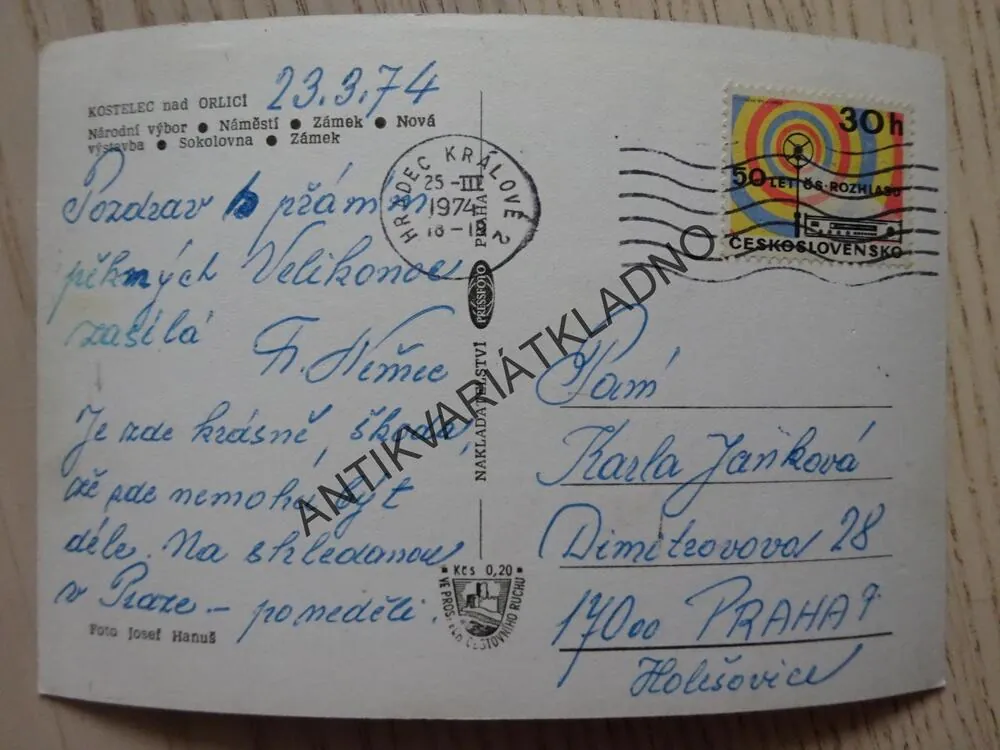 KOSTELEC nad ORLICÍ
23.3.74
Národní výbor ● Náměstí ● Zámek ● Nová
výstavba ● Sokolovna ● Zámek
Pozdrav s přáním
pěkných Velikonoc
zasílá
Fr. Němec
Je zde krásně, škoda,
že zde nemohu být
déle. Na shledanou
v Praze - pondělí.
Foto Josef Hanuš
HRADEC KRÁLOVÉ 2
25 -III
1974
NAKLADATELSTVÍ PRESSFOTO PRAHA
Kčs 0,20
VE PROSPĚCH CESTOVNÍHO RUCHU
30h
50 LET ČS. ROZHLASU
ČESKOSLOVENSKO
Paní
Karla Janková
Dimitrovova 28
17000 PRAHA 7
Holešovice
ANTIKVARIÁTKLADNO